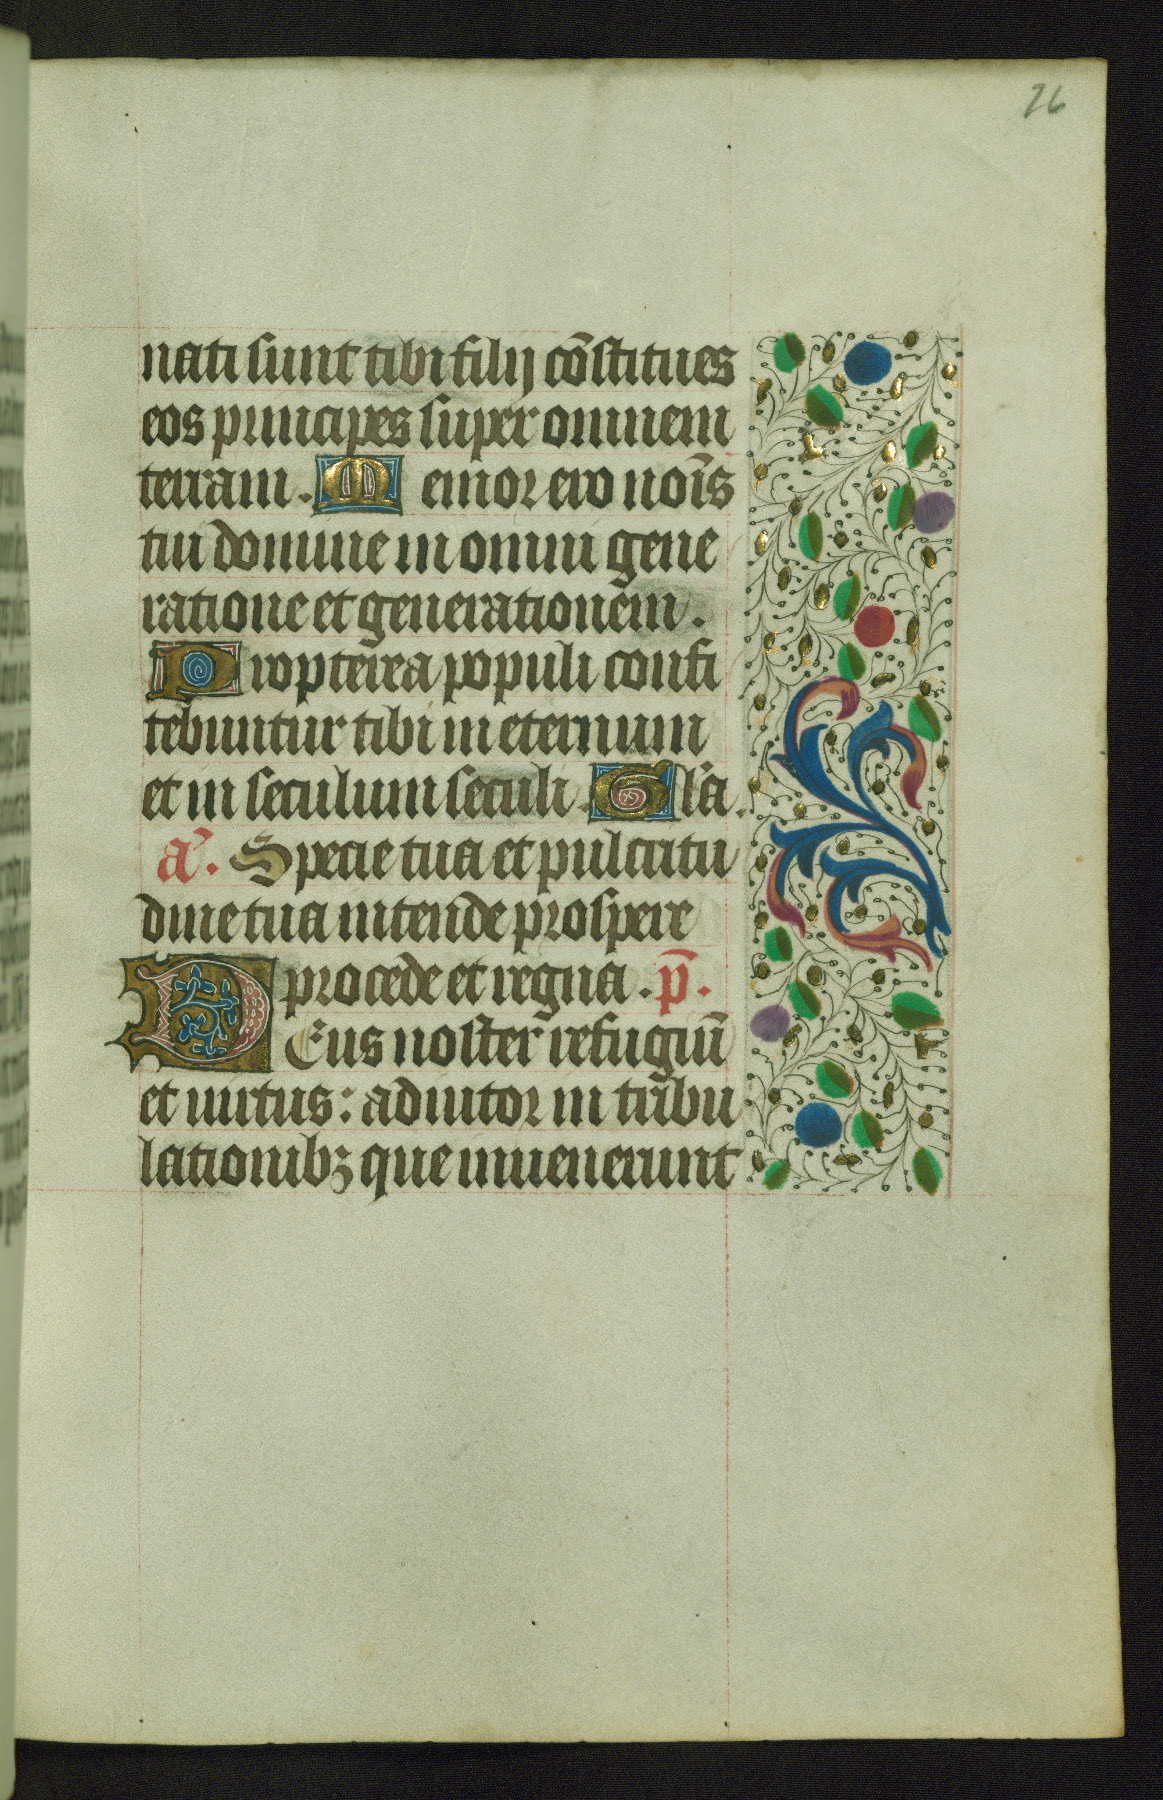 26
nati sunt tibi filij cōstitues
eos principes super omnem
terram. Memor ero noīs
tui domine in omni gene
ratione et generationem.
Propterea populi confi
tebuntur tibi in eternum
et in seculum seculi. Gl'a.
a'. Specie tua et pulcritu
dine tua intende prospere
procede et regna. p̄.
Deus noster refugiū
et uirtus: adiutor in tribu
lationibꝫ que inuenerunt